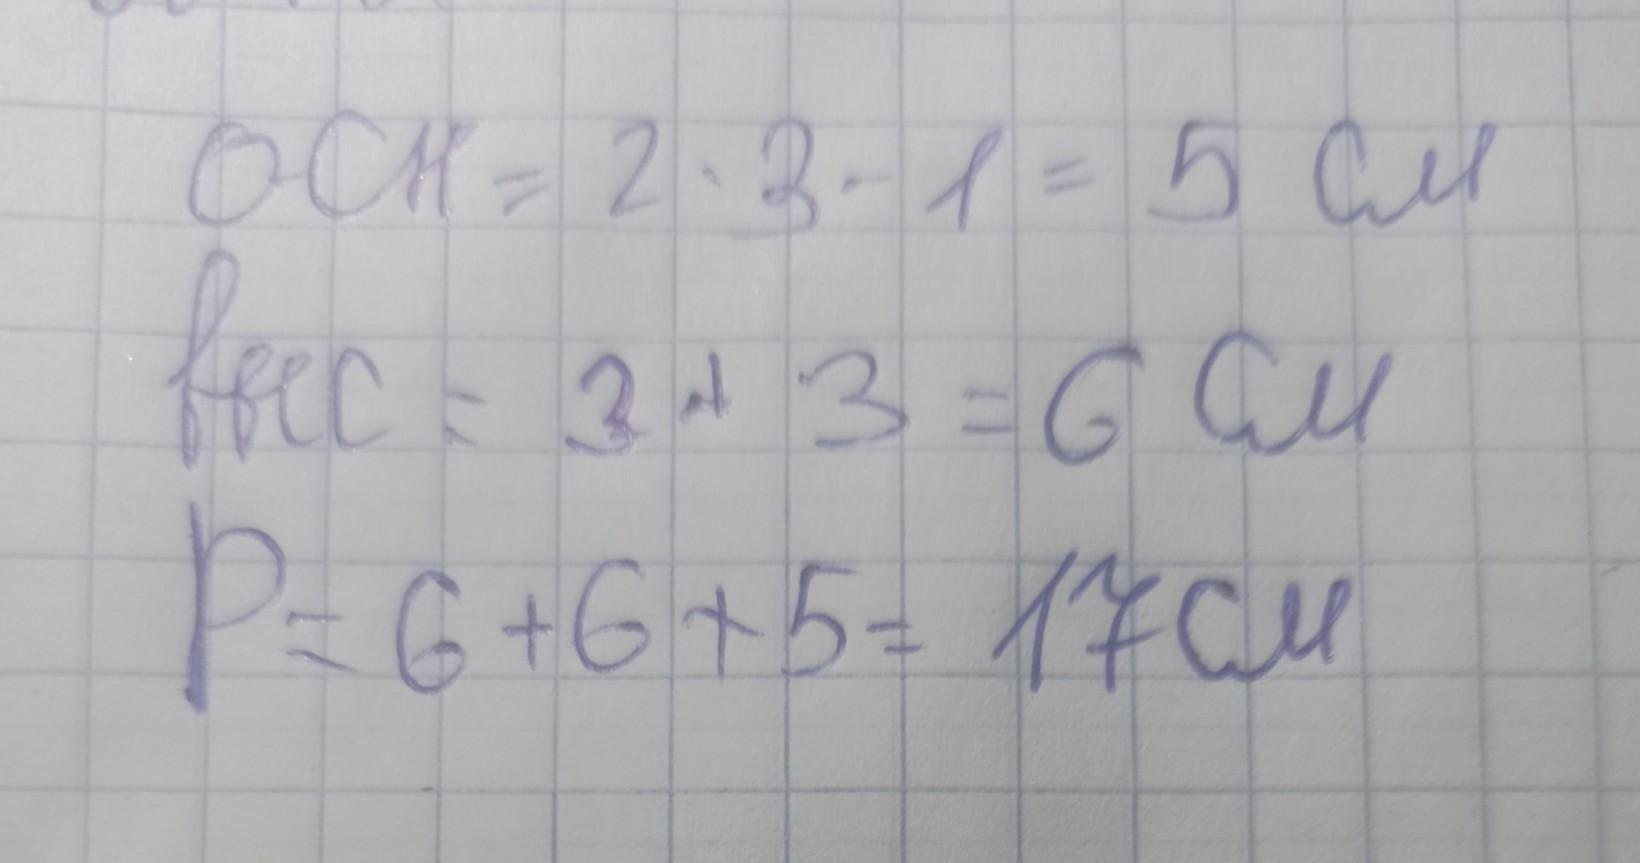 осн = 2 · 3 - 1 = 5 см
выс = 3 + 3 = 6 см
P = 6 + 6 + 5 = 17 см